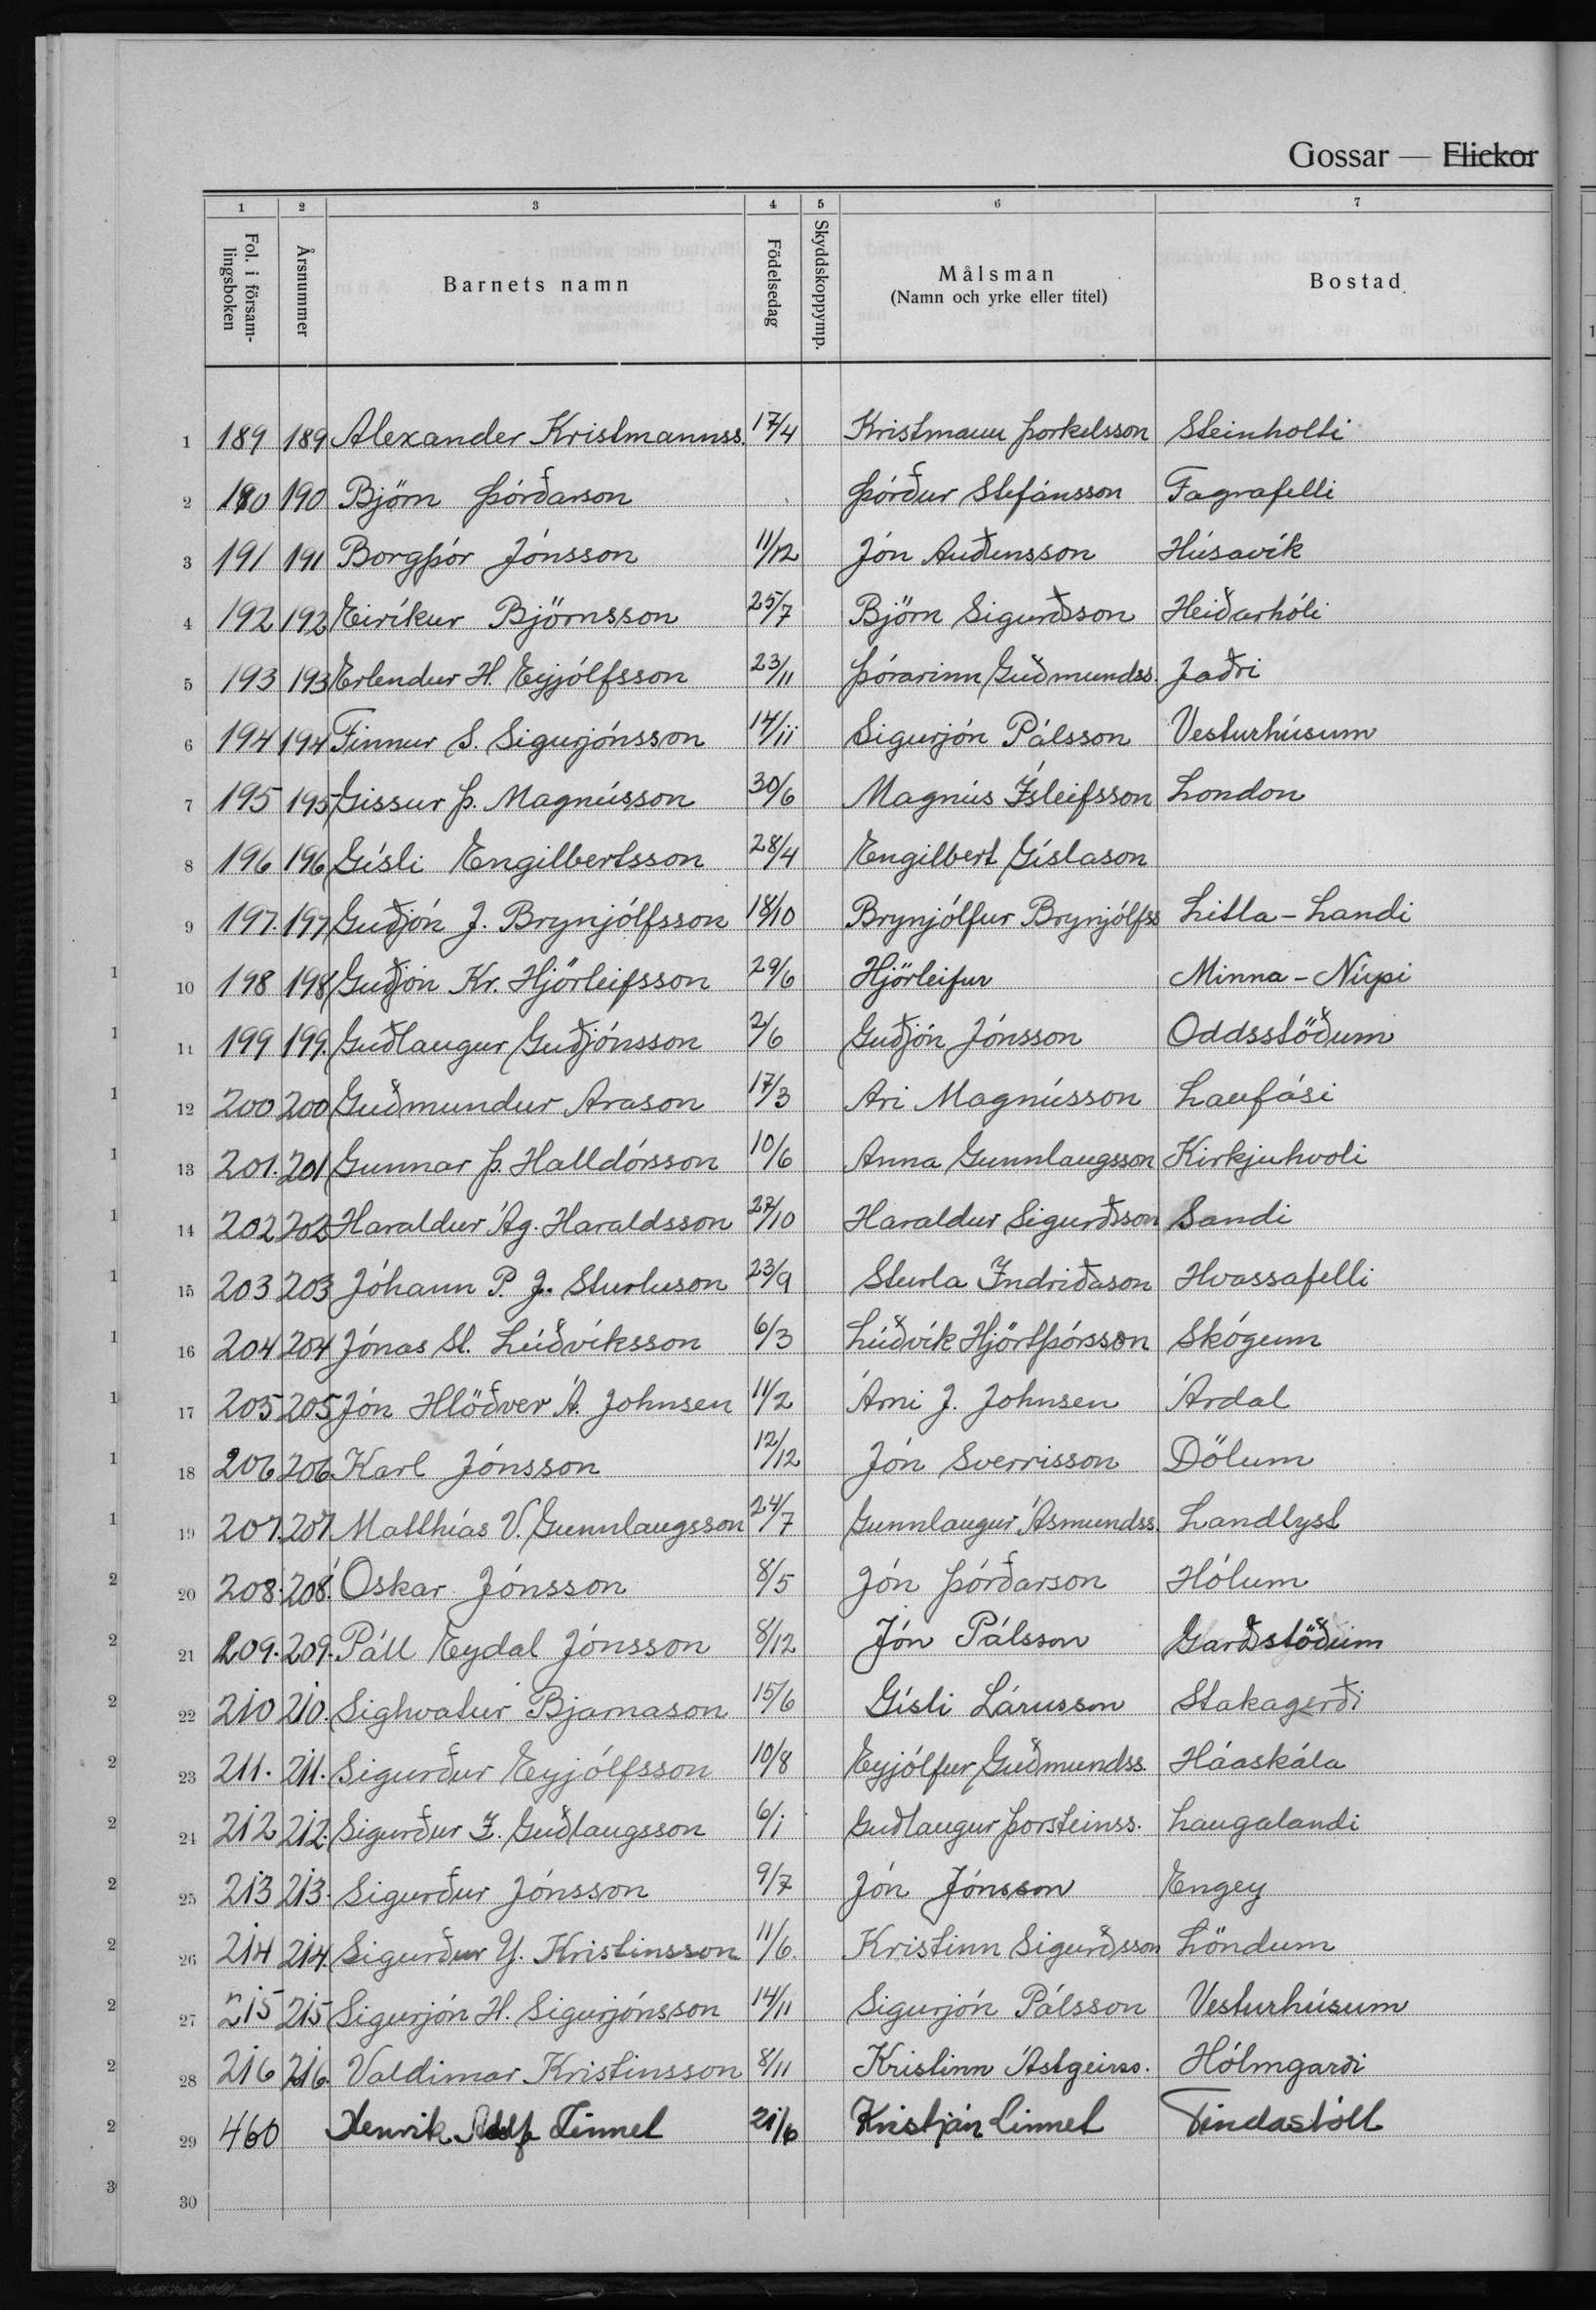 Gossar — Flickor
1 2 3 4 5 6 7
Fol. i församlingsboken Årsnummer Barnets namn Födelsedag Skyddskoppymp. Målsman (Namn och yrke eller titel) Bostad
1 189 189 Alexander Kristmannss. 17/4 Kristmann Þorkelsson Steinholti
2 190 190 Björn Þórðarson Þórður Stefánsson Fagrafelli
3 191 191 Borgþór Jónsson 11/12 Jón Auðunsson Húsavík
4 192 192 Eiríkur Björnsson 25/7 Björn Sigurðsson Heiðarhóli
5 193 193 Erlendur H. Eyjólfsson 23/11 Þórarinn Guðmundss. Jaðri
6 194 194 Finnur S. Sigurjónsson 14/11 Sigurjón Pálsson Vesturhúsum
7 195 195 Gissur Þ. Magnússon 30/6 Magnús Ísleifsson London
8 196 196 Gísli Engilbertsson 28/4 Engilbert Gíslason
9 197. 197 Guðjón J. Brynjólfsson 18/10 Brynjólfur Brynjólfss Litla-Landi
10 198 198 Guðjón Kr. Hjörleifsson 29/6 Hjörleifur Minna-Núpi
11 199 199. Guðlaugur Guðjónsson 2/6 Guðjón Jónsson Oddsstöðum
12 200 200 Guðmundur Arason 17/3 Ari Magnússon Laufási
13 201. 201 Gunnar Þ. Halldórsson 10/6 Anna Gunnlaugsson Kirkjuhvoli
14 202 202 Haraldur Ág. Haraldsson 27/10 Haraldur Sigurðsson Sandi
15 203 203 Jóhann P. J. Sturluson 23/9 Sturla Indriðason Hvassafelli
16 204 204 Jónas St. Lúðvíksson 6/3 Lúðvík Hjörtþórsson Skógum
17 205 205 Jón Hlöðver Á. Johnsen 11/2 Árni J. Johnsen Árdal
18 206 206 Karl Jónsson 12/12 Jón Sverrisson Dölum
19 207. 207. Matthías V. Gunnlaugsson 24/7 Gunnlaugur Ásmundss. Landlyst
20 208. 208. Óskar Jónsson 8/5 Jón Þórðarson Hólum
21 209. 209. Páll Eydal Jónsson 8/12 Jón Pálsson Garðstöðum
22 210 210. Sighvatur Bjarnason 15/6 Gísli Lárusson Stakagerði
23 211. 211. Sigurður Eyjólfsson 10/8 Eyjólfur Guðmundss. Háaskála
24 212 212. Sigurður Í. Guðlaugsson 6/1 Guðlaugur Þorsteinss. Laugalandi
25 213 213. Sigurður Jónsson 9/7 Jón Jónsson Engey
26 214 214. Sigurður Y. Kristinsson 11/6. Kristinn Sigurðsson Löndum
27 215 215 Sigurjón H. Sigurjónsson 14/11 Sigurjón Pálsson Vesturhúsum
28 216 216. Valdimar Kristinsson 8/11 Kristinn Ástgeirss. Hólmgarði
29 460 Henrik Adolf Linnet 21/6 Kristján Linnet Tindastóll
30